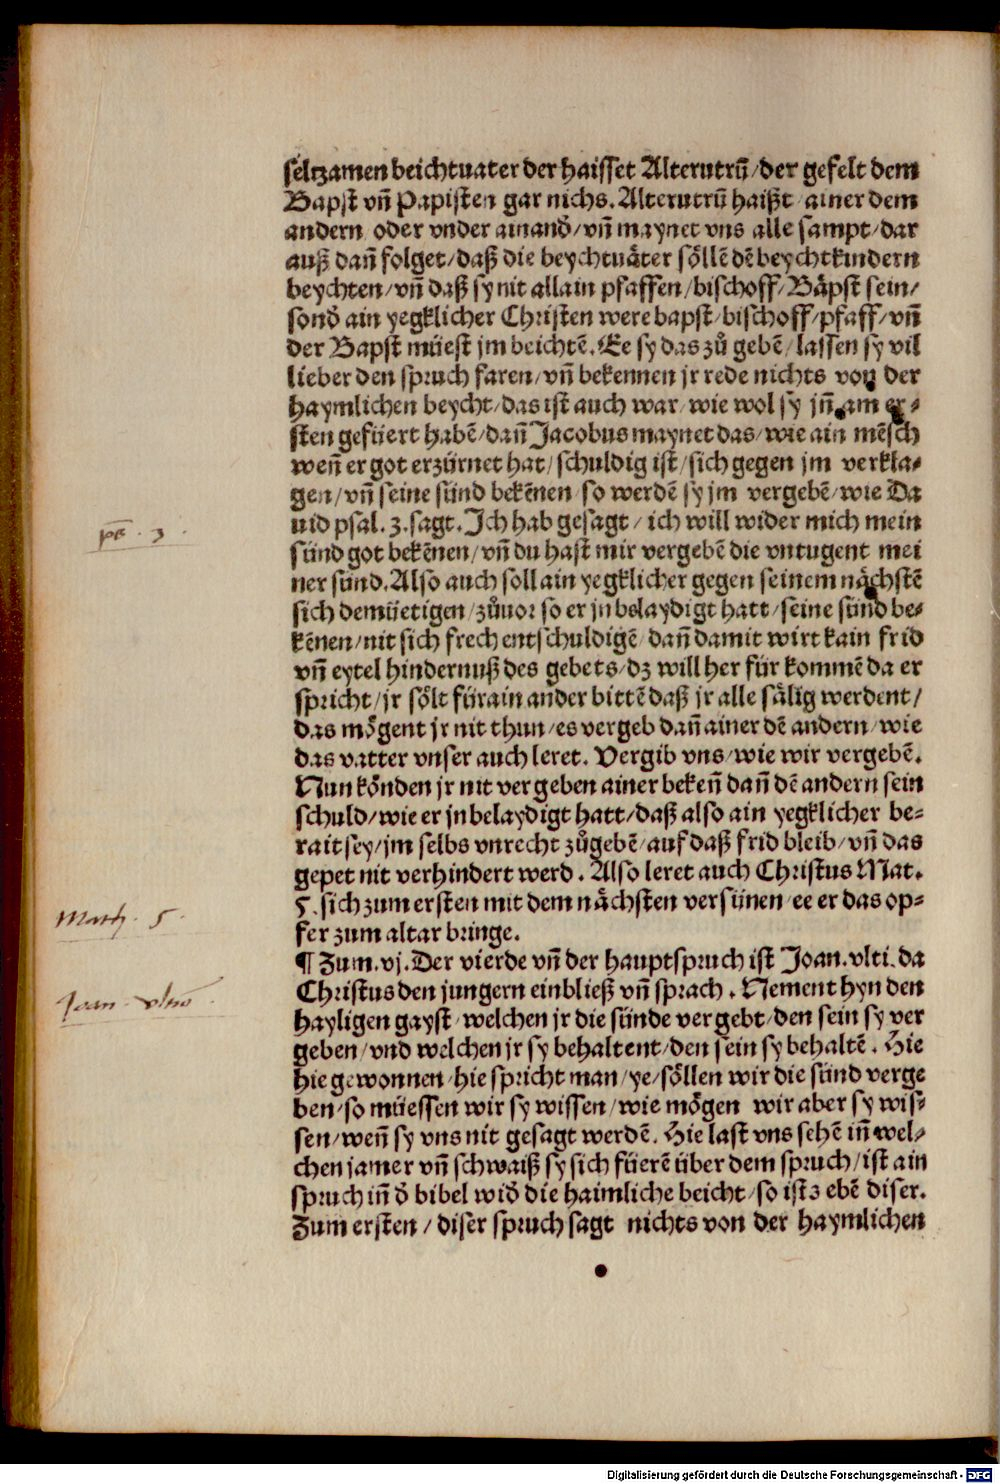 seltzamen beichtuater der haisset Alterutrũ/der gefelt dem
Bapst vñ Papisten gar nichs. Alterutrũ haißt/ ainer dem
andern oder vnder ainand̄/ vñ maynet vns alle sampt/dar
auß dañ folget/daß die beychtuäter söllẽ dẽ beychtkindern
beychten/vñ daß sy nit allain pfaffen/bischoff/Bäpst sein/
sond̄ ain yegklicher Christen were bapst/bischoff/pfaff/vñ
der Bapst müest jm beichtẽ. Ee sy das zů gebẽ/lassen sy vil
lieber den spruch faren/vñ bekennen jr rede nichts von der
haymlichen beycht/das ist auch war/wie wol sy jñ am er-
sten gefüert habẽ/dañ Jacobus maynet das/wie ain mẽsch
weñ er got erzürnet hat/schuldig ist/sich gegen jm verkla-
gen/vñ seine sünd bekẽnen/so werdẽ sy jm vergebẽ/wie Da
uid psal. 3. sagt. Ich hab gesagt/ich will wider mich mein
sünd got bekẽnen/vñ du hast mir vergebẽ die vntugent mei
ner sünd. Also auch soll ain yegklicher gegen seinem nächstẽ
sich demüetigen/zůuor so er jn belaydigt hatt/seine sünd be-
kẽnen/nit sich frech entschuldigẽ/dañ damit wirt kain frid
vñ eytel hindernuß des gebets/dz will her für kommẽ da er
spricht/jr sölt für ain ander bittẽ daß jr alle sälig werdent/
das mögent jr nit thun/es vergeb dañ ainer dẽ andern/wie
das vatter vnser auch leret. Vergib vns/wie wir vergebẽ.
Nun könden jr nit vergeben ainer bekeñ dañ dẽ andern sein
schuld/wie er jn belaydigt hatt/daß also ain yegklicher be-
rait sey/jm selbs vnrecht zůgebẽ/auf daß frid bleib/vñ das
gepet nit verhindert werd. Also leret auch Christus Mat.
5. sich zum ersten mit dem nächsten versünen/ee er das op-
fer zum altar bringe.
¶ Zum. vj. Der vierde vñ der hauptspruch ist Joan. vlti. da
Christus den jungern einbließ vñ sprach. Nement hyn den
hayligen gayst/welchen jr die sünde vergebt/den sein sy ver
geben/vnd welchen jr sy behaltent/den sein sy behaltẽ. Hie
hie gewonnen/hie spricht man/ye/söllen wir die sünd verge
ben/so müessen wir sy wissen/wie mögen wir aber sy wis-
sen/weñ sy vns nit gesagt werdẽ. Hie last vns sehẽ iñ wel-
chen jamer vñ schwaiß sy sich füerẽ über dem spruch/ist ain
spruch iñ d̄ bibel wid̄ die haimliche beicht/so ists ebẽ diser.
Zum ersten/diser spruch sagt nichts von der haymlichen
ps. 3.
Math. 5.
Joan. vltiō.
Digitalisierung gefördert durch die Deutsche Forschungsgemeinschaft - DFG